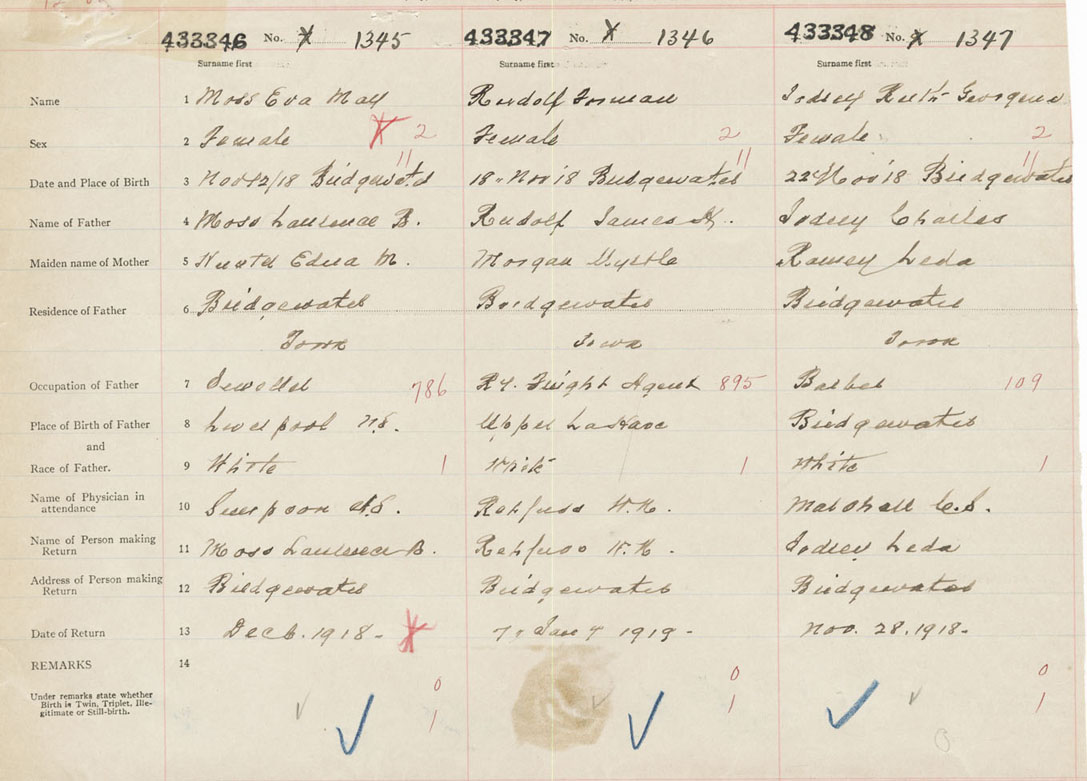 433346 No. 1345 433347 No. 1346 433348 No. 1347
Surname first Surname first Surname first
Name 1 Moss Eva May Rudolf Jodrey Ruth
Sex 2 Female 2 Female 2 Female 2
11 11 11
Date and Place of Birth 3 Nov 12/18 Bridgewater 18 Nov 18 Bridgewater 22 Nov 18 Bridgewater
Name of Father 4 Moss Laurence B. Rudolf James Jodrey Charles
Maiden name of Mother 5 Edna M. Morgan Myrtle Ramey Leda
Residence of Father 6 Bridgewater Bridgewater Bridgewater
Town Town Town
Occupation of Father 7 786 Ry. Freight Agent 895 Barber 109
Place of Birth of Father 8 Liverpool N.S. Upper LaHave Bridgewater
and
Race of Father. 9 White 1 White 1 White 1
Name of Physician in
attendance 10 Rehfuss W.N. Marshall C.S.
Name of Person making
Return 11 Moss Laurence B. Rehfuss W.N. Jodrey Leda
Address of Person making
Return 12 Bridgewater Bridgewater Bridgewater
Date of Return 13 Dec 6. 1918 - Jan 7 1919 - Nov. 28. 1918 -
REMARKS 14
0 0 0
Under remarks state whether
Birth is Twin, Triplet, Ille-
gitimate or Still-birth.
1 1 1